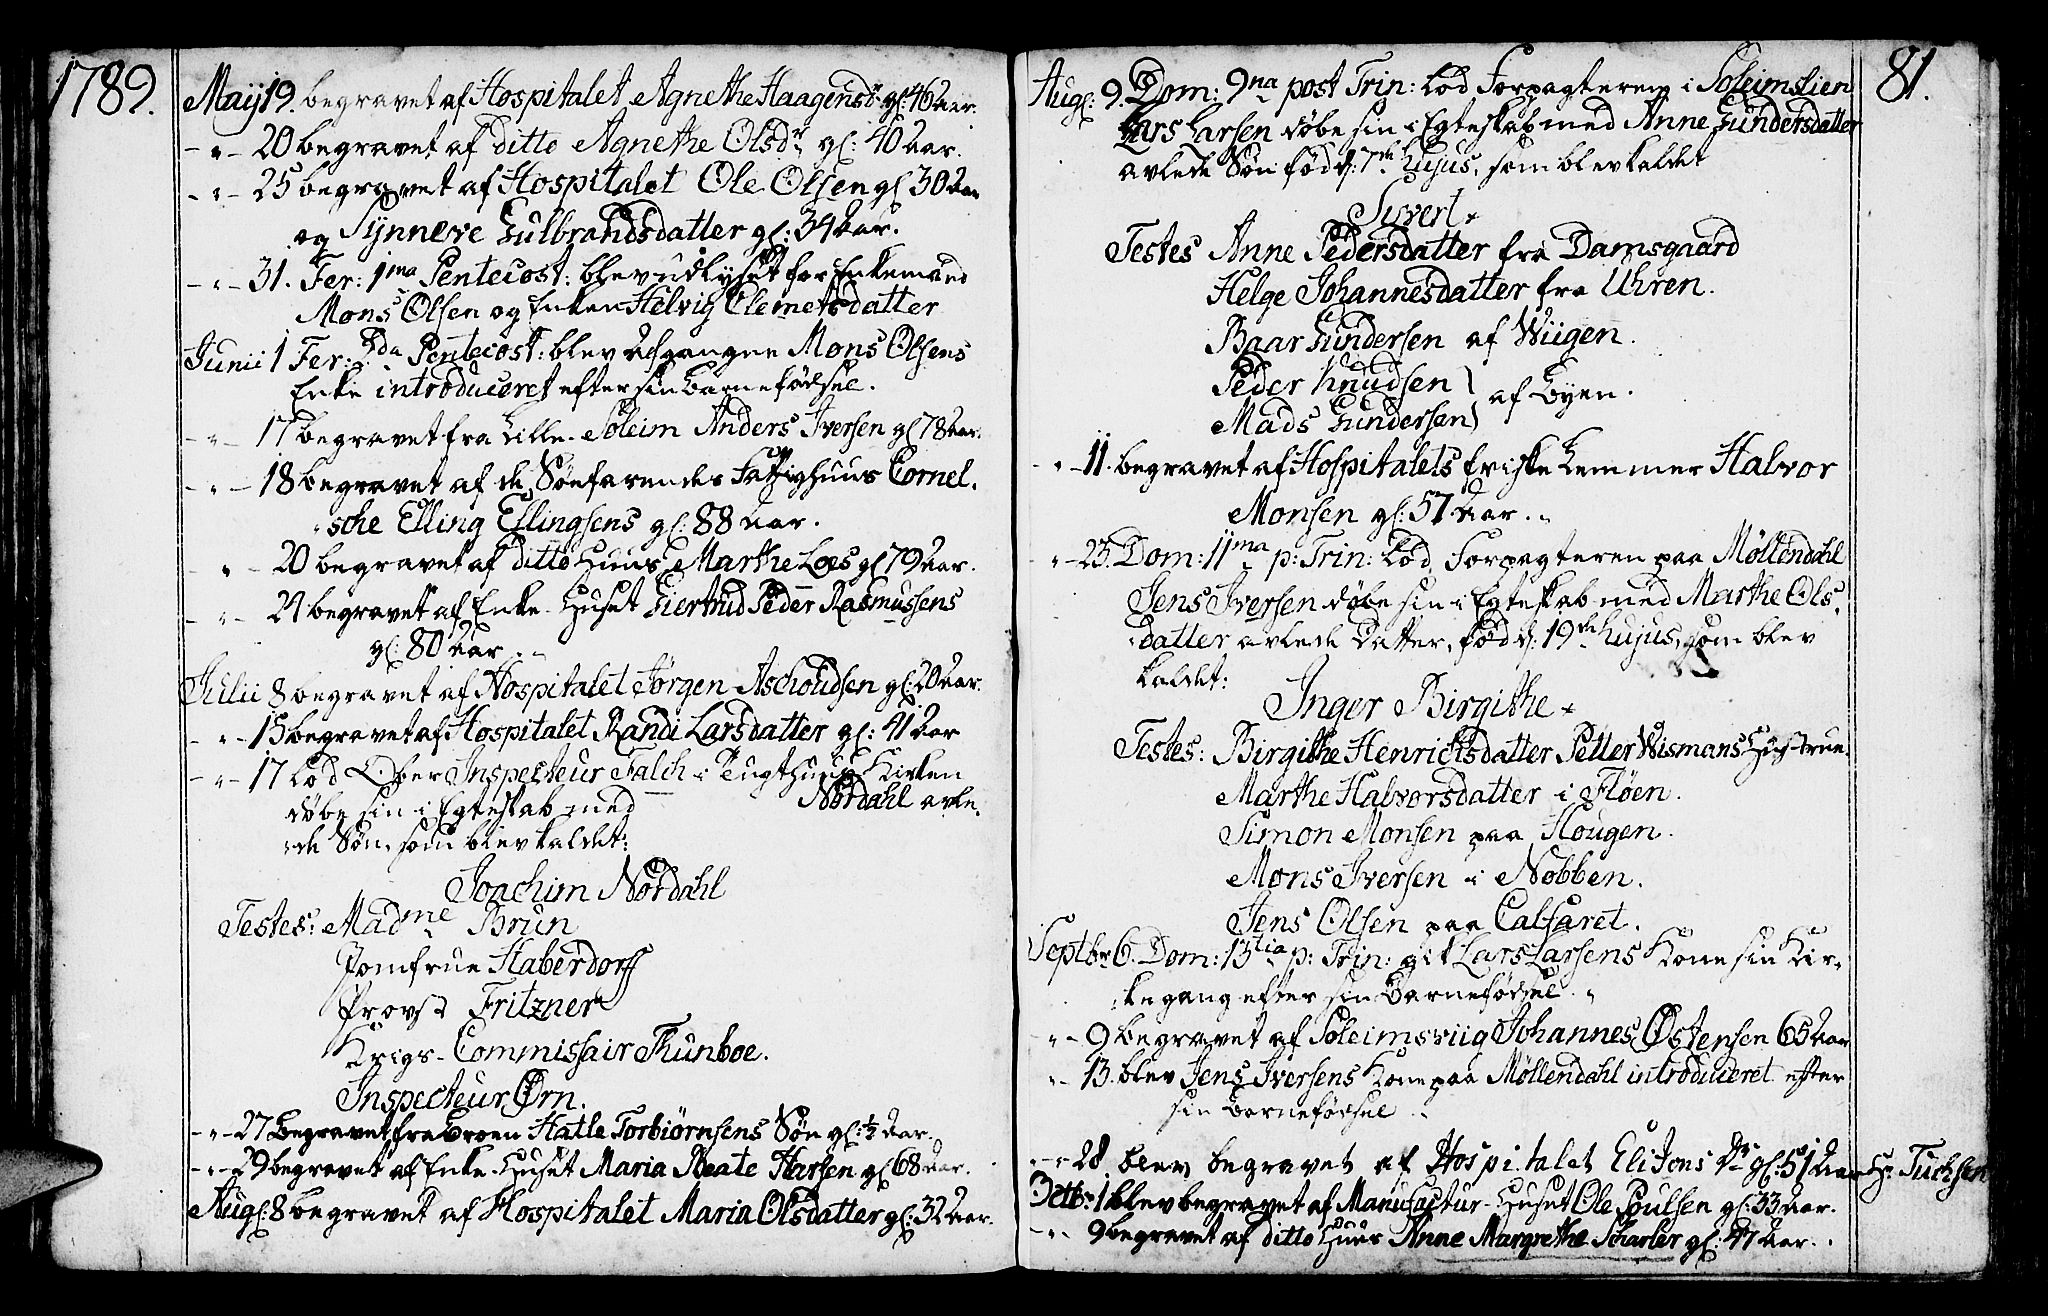 1789.
Maij 19. begravet af Hospitalet Agnethe Haagensdr gl: 46 Aar.
- " - 20 begravet af ditto Agnethe Olsdr gl: 40 Aar.
- " - 25 begravet af Hospitalet Ole Olsen gl 30 Aar
og Synneve Gulbrandsdatter gl: 34 Aar.
- " - 31. Fer: 1ma Pentecost: blev udlyset for Enkemand
Mons Olsen og Enken Helvig Clemetsdatter
Junii 1 Fer: 2da Pentecost: blev afgangne Mons Olsens
Enke introduceret efter sin Barnefødsel.
- " - 17 begravet fra Lille-Soleim Anders Iversen gl 78 Aar.
- " - 18 begravet af de Søefarendes Fattighuus Cornel.
"sche Elling Ellingsens gl: 88 Aar.
- " - 20 begravet af ditto Huus Marthe Loes gl 79 Aar.
- " - 21 begravet af Enke-Huset Giertrud Peder Rasmussens
gl: 80 Aar.
Julii 8 begravet af Hospitalet Jørgen Aschoudsen gl: 20 Aar.
- " - 15 begravet af Hospitalet Randi Larsdatter gl: 41 Aar
- " - 17 lod Ober Inspecteur Falch i Tugthuus Kirken
døbe sin i Egteskab med Nordahl avle-
:de Søn, som blev kaldet:
Joachim Nordahl
Testes: Madme Brun
Jomfrue Haberdorff
Provst Fritzner
Krigs-Commissair Thunboe.
Inspecteur Ørn.
- " - 27 Begravet fra Hatle Torbiørnsens Søn gl: 1/2 Aar.
- " - 29 begravet af Enke-Huset Maria Beate Harsen gl 68 Aar.
Augl: 8 begravet af Hospitalet Maria Olsdatter gl: 32 Aar.
81.
Augl: 9. Dom: 9na post Trin: lod Forpagteren i Soleimslien
Lars Larsen døbe sin i Egteskab med Anne Gundersdatter
avlede Søn fød d: 7de hujus, som blev kaldet
Sivert
Testes Anne Pedersdatter fra Damsgaard
Helge Johannesdatter fra Uhren.
Baar Gundersen af Wiigen.
Peder Knudsen }
Mads Gundersen } af Byen.
- " - 11. begravet af Hospitalets friske Lemmer Halvor
Monsen gl: 57 Aar. "
- " - 23. Dom: 11ma p: Trin: lod Forpagteren paa Møllendahl
Jens Iversen døbe sin i Egteskab med Marthe Ols.
"datter avlede Datter, fød d: 19de hujus, som blev
kaldet:
Inger Birgithe
Testes: Birgithe Henrichsdatter Petter Wismans Hustrue.
Marthe Halvorsdatter i Fløen.
Simon Monsen paa Hougen.
Mons Iversen i Nobben.
Jens Olsen paa Calfaret.
Septbr 6. Dom: 13tia p: Trin: gik Lars Larsens Kone sin Kir-
:kegang efter sin Barnefødsel. "
- " - 9 begravet af Soleimsviig Johannes Østensen 65 Aar
" - 13. blev Jens Iversens Kone paa Møllendahl introduceret efter
sin Barnefødsel. "
- " - 28. blev begravet af Hospitalet Eli Jons Dr gl: 51 Aar Hr: Tuchsen
Octbr 1 blev begravet af Manufactur-Huset Ole Poulsen gl: 33 Aar.
- " - 9 begravet af ditto Huus Anne Margrethe Scharler gl: 47 Aar.